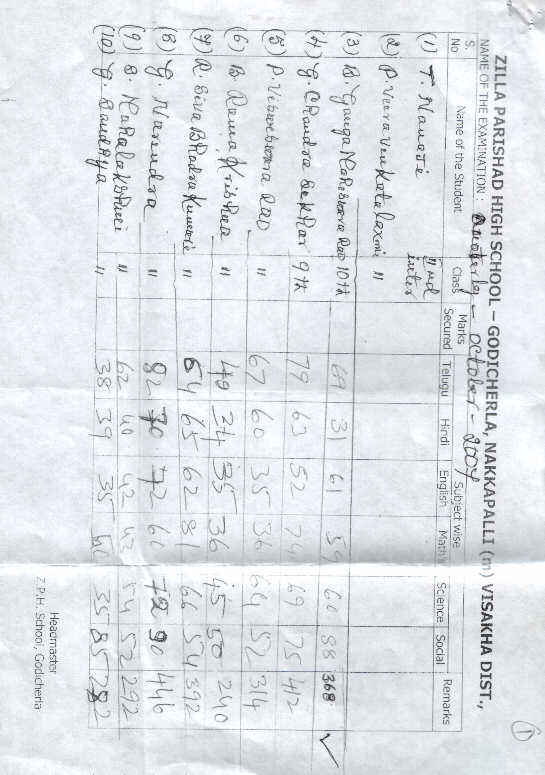 ①
ZILLA PARISHAD HIGH SCHOOL – GODICHERLA, NAKKAPALLI (m) VISAKHA DIST.,
NAME OF THE EXAMINATION : Quaterly – october – 2007
S. No Name of the Student Class Marks Secured Subject wise Remarks
Telugu Hindi English Math's Science Social
(1) T. Manasie IInd inter
(2) P. Veera Venkatalaxmi "
(3) B. Ganga Maheswara Rao 10th 69 31 61 59 60 88 368 ✓
(4) G. Chandra Sekhar 9th 79 63 52 74 69 75 412
(5) P. Visweswara Rao " 67 60 35 36 64 52 314
(6) B. Rama Krishna " 40 34 35 36 45 50 240
(7) R. Siva Bhadra Kumari " 64 65 62 81 66 54 392
(8) G. Narendra " 82 70 72 60 72 90 446
(9) S. Mahalakshmi " 62 40 42 42 54 52 292
(10) G. Sandhya " 38 39 35 50 35 85 282
Headmaster
Z.P.H. School, Godicherla